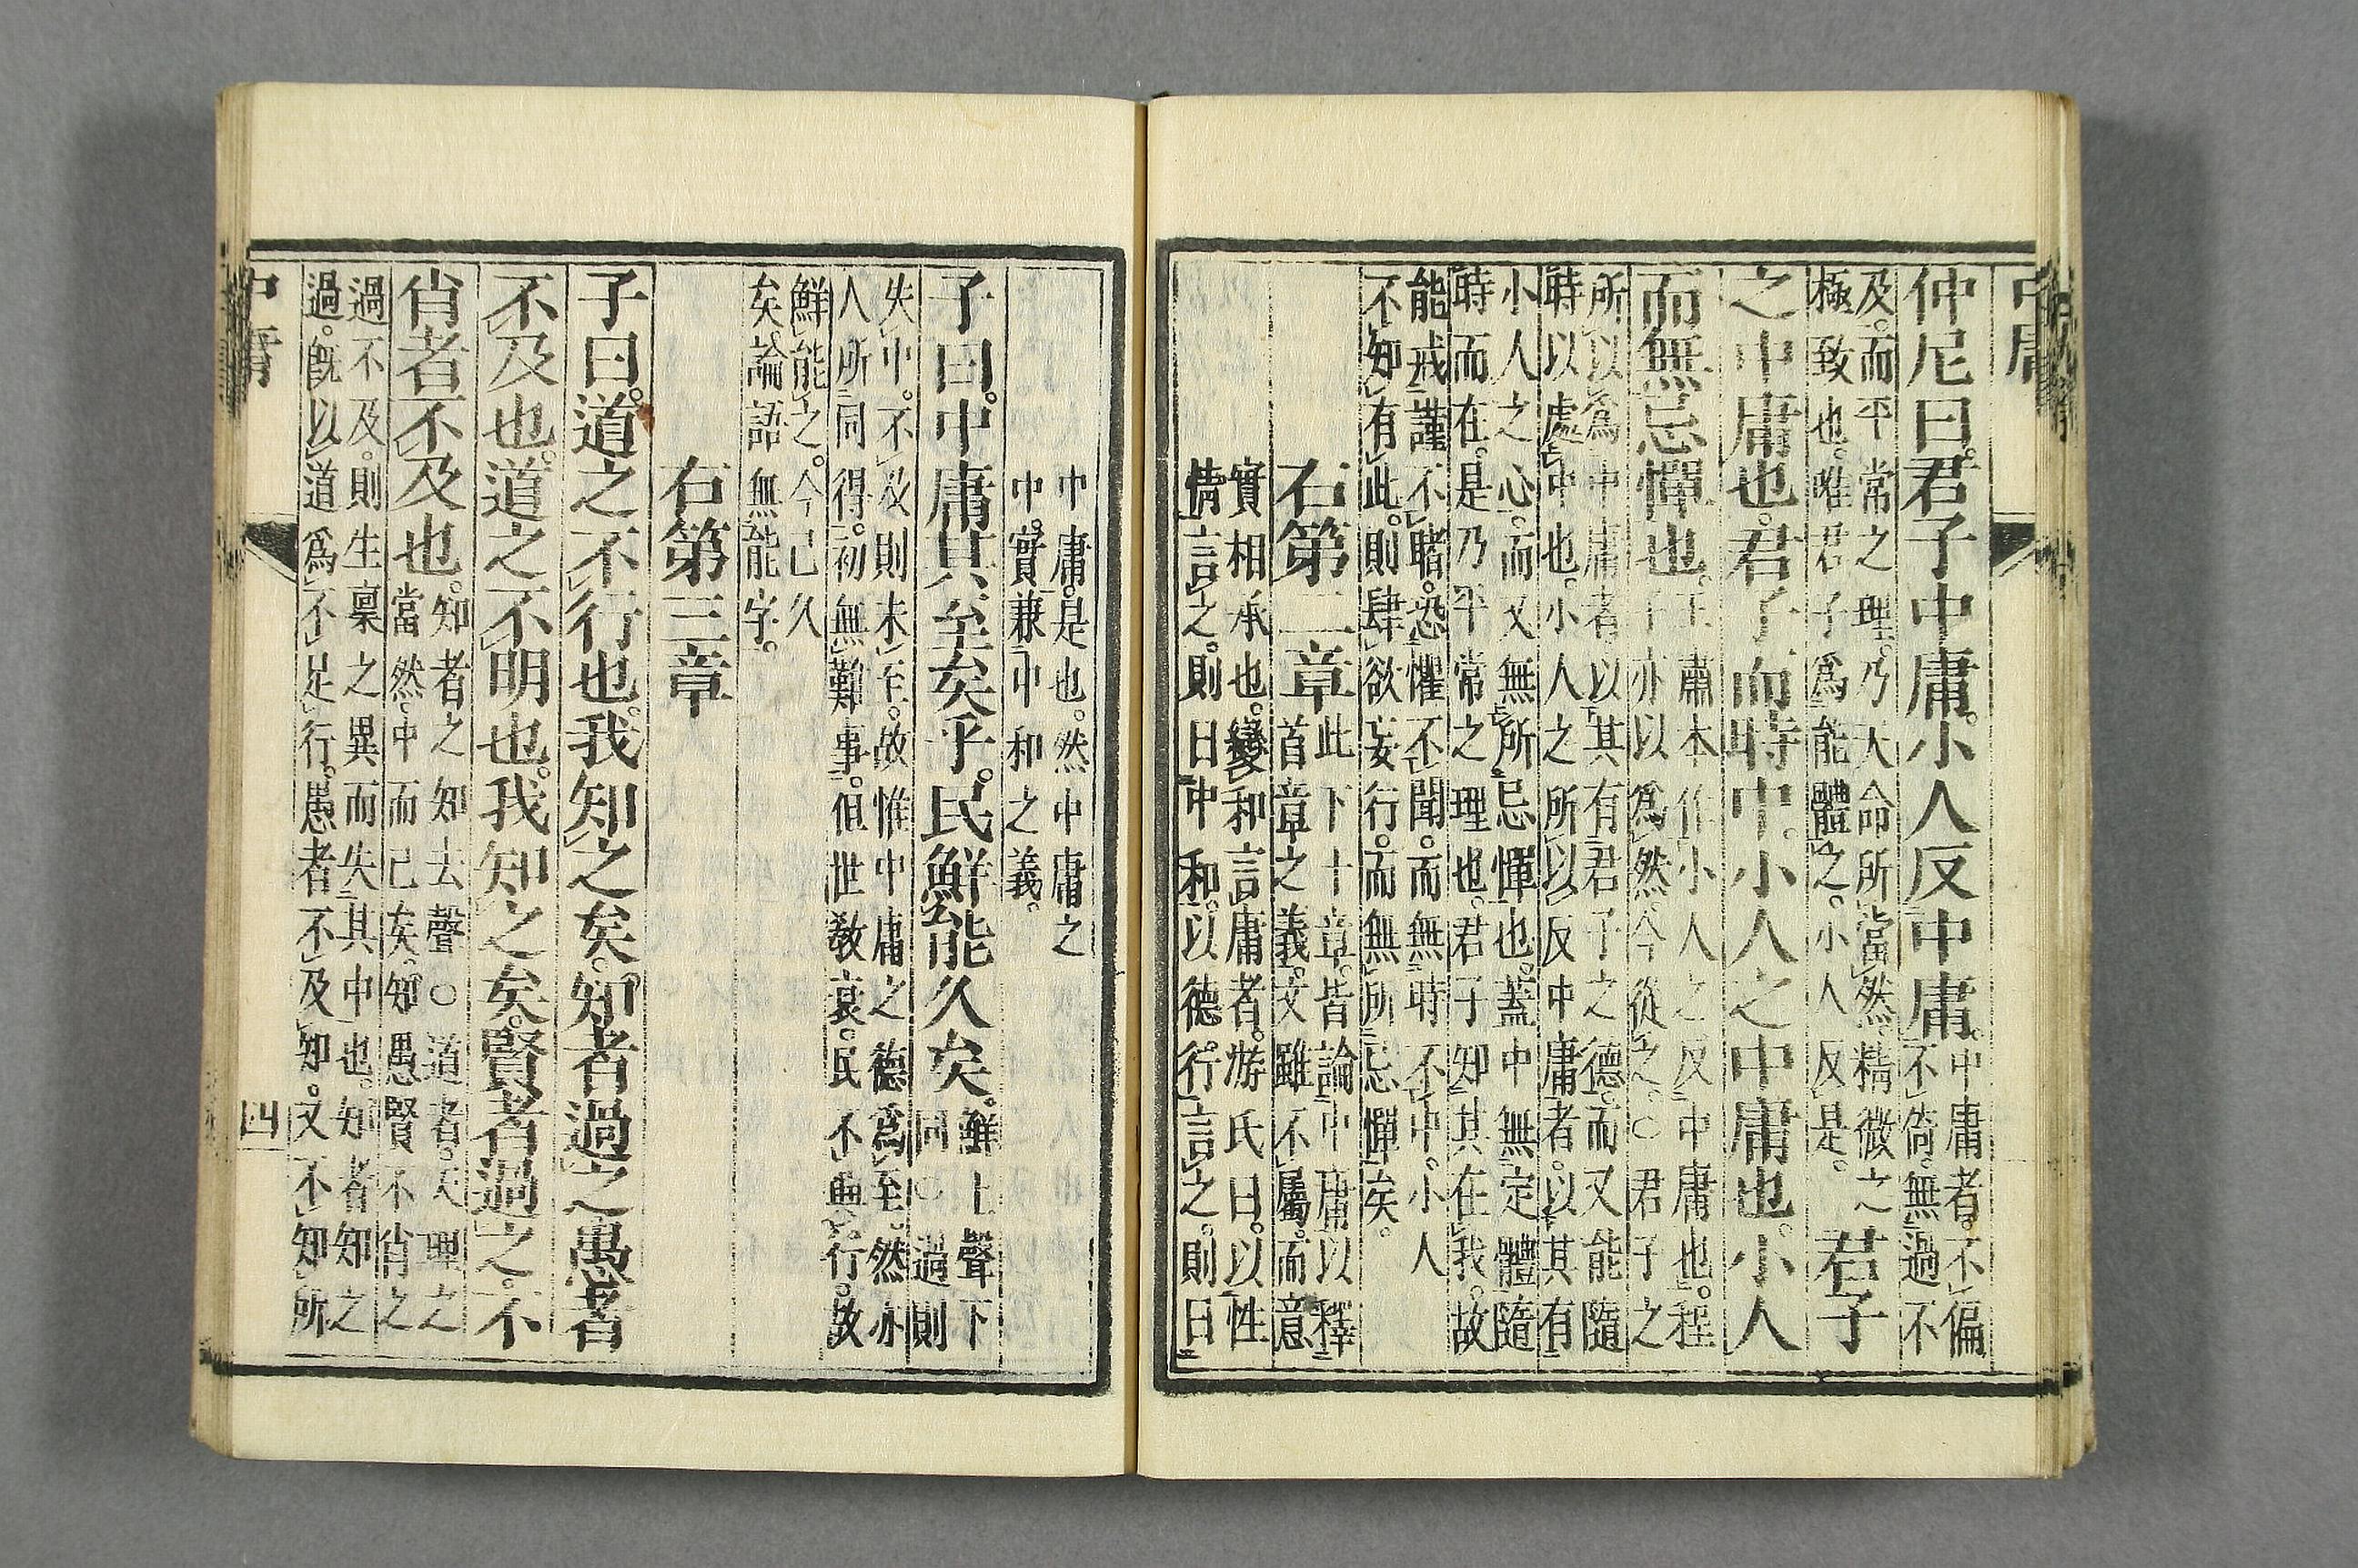 中庸
仲尼曰。君子中庸。小人反中庸。中庸者。不偏
不倚。無過不
及。而平常之理。乃天命所當然。精微之
極致也。唯君子爲能體之。小人反是。君子
之中庸也。君子而時中。小人之中庸也。小人
而無忌憚也。王肅本作小人之反中庸也。程
子亦以爲然。今從之。○君子之
所以爲中庸者。以其有君子之德。而又能隨
時以處中也。小人之所以反中庸者。以其有
小人之心。而又無所忌憚也。蓋中無定體。隨
時而在。是乃平常之理也。君子知其在我。故
能戒謹不睹。恐懼不聞。而無時不中。小人
不知有此。則肆欲妄行。而無所忌憚矣。
右第二章此下十章。皆論中庸以釋
首章之義。文雖不屬。而意
實相承也。變和言庸者。游氏曰。以性
情言之。則曰中和。以德行言之。則曰
中庸。是也。然中庸之
中。實兼中和之義。
子曰。中庸其至矣乎。民鮮能久矣。鮮上聲下
同○過則
失中。不及則未至。故惟中庸之德爲至。然亦
人所同得。初無難事。但世敎衰。民不興行。故
鮮能之。今已久
矣。論語無能字。
右第三章
子曰。道之不行也。我知之矣。知者過之。愚者
不及也。道之不明也。我知之矣。賢者過之。不
肖者不及也。知者之知去聲○道者。天理之
當然。中而已矣。知愚賢不肖之
過不及。則生稟之異而失其中也。知者知之
過。既以道爲不足行。愚者不及知。又不知所
中庸
四